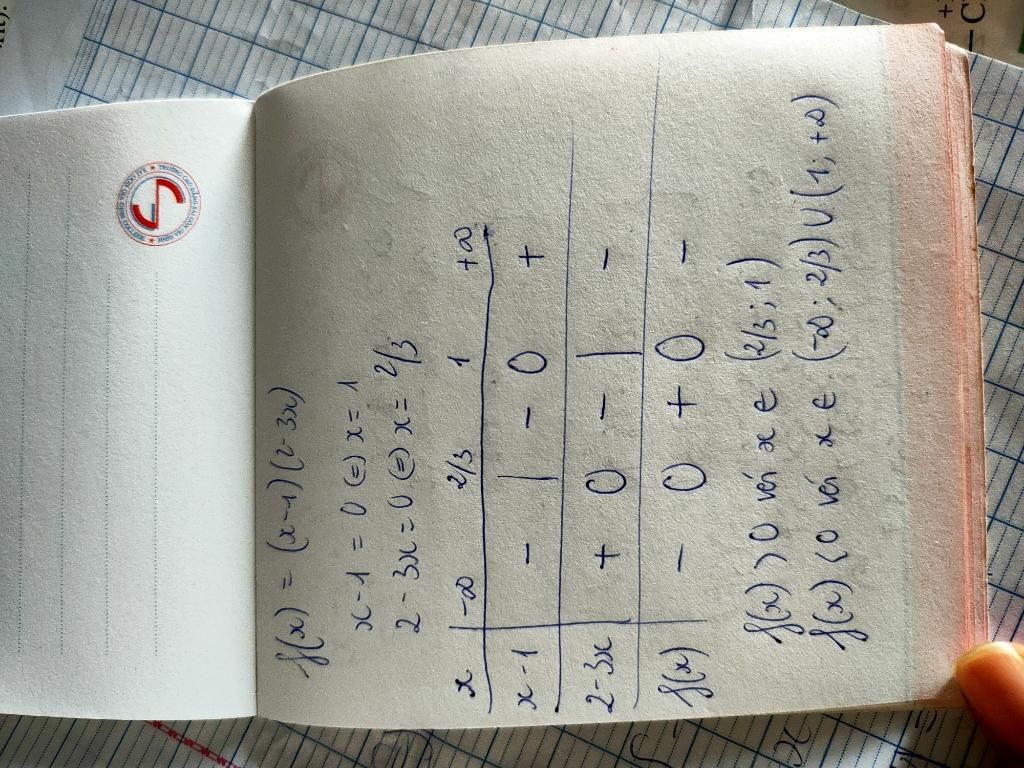 f(x) = (x-1)(2-3x)
x-1 = 0 (=) x = 1
2-3x = 0 (=) x = 2/3
x | -∞ 2/3 1 +∞
x-1 | - | - 0 +
2-3x | + 0 - | -
f(x) | - 0 + 0 -
f(x) > 0 với x ∈ (2/3; 1)
f(x) < 0 với x ∈ (-∞; 2/3) ∪ (1; +∞)